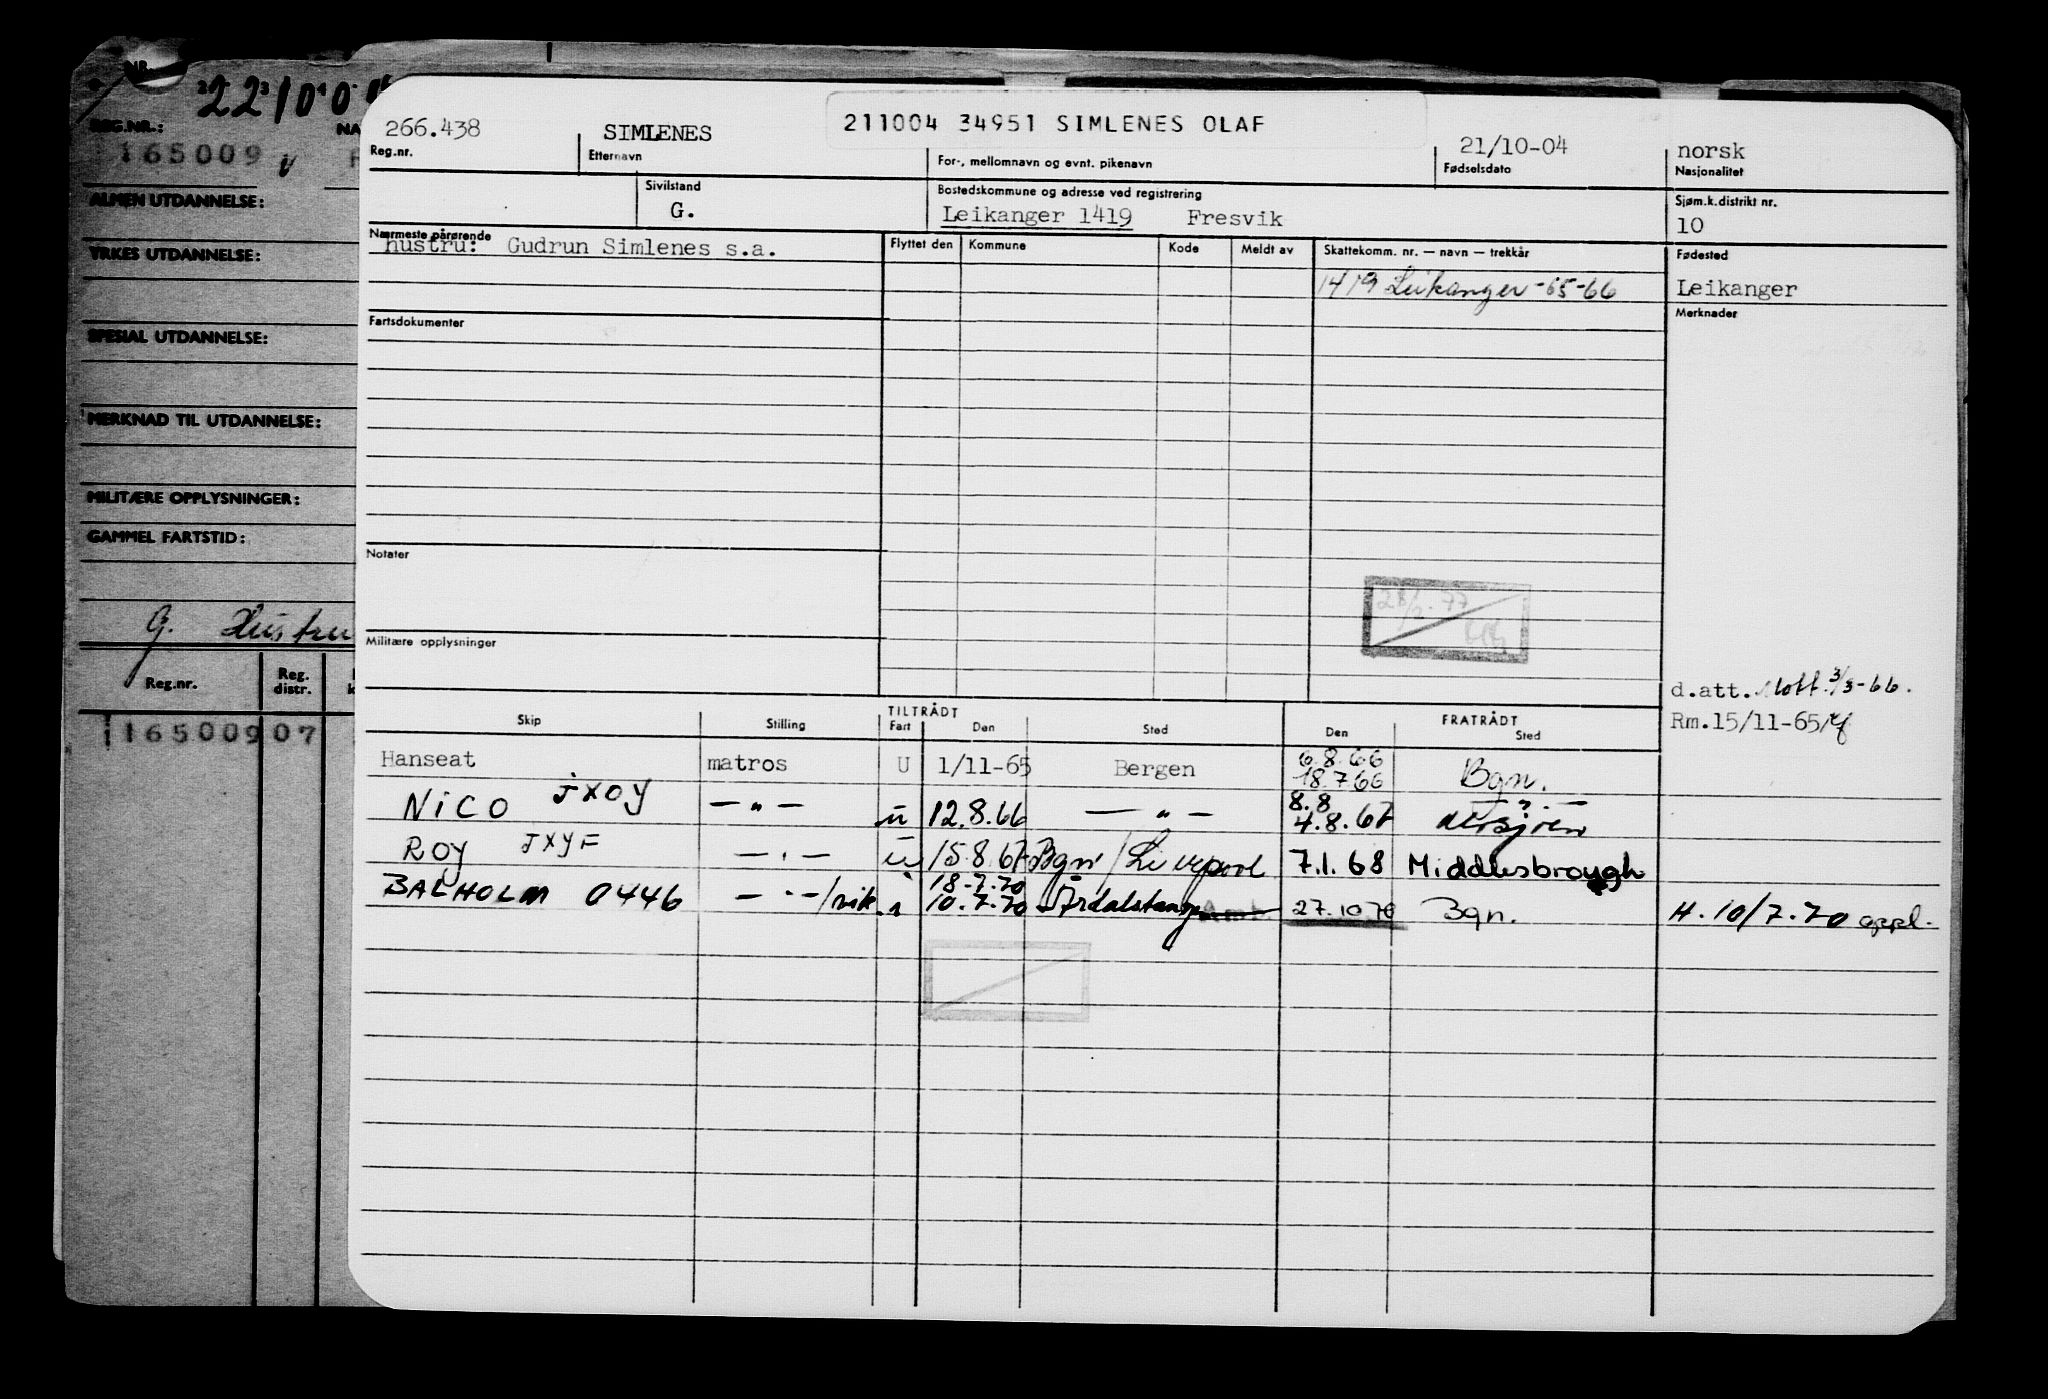 NR.
221004
REG.NR.:
165009
ALMEN UTDANNELSE:
YRKES UTDANNELSE:
SPESIAL UTDANNELSE:
MERKNAD TIL UTDANNELSE:
MILITÆRE OPPLYSNINGER:
GAMMEL FARTSTID:
G. Hustru
Reg.nr. Reg. distr.
116500907
266.438 SIMLENES 211004 34951 SIMLENES OLAF 21/10-04 norsk
Reg.nr. Etternavn For-, mellomnavn og evnt. pikenavn Fødselsdato Nasjonalitet
Sivilstand Bostedskommune og adresse ved registrering Sjøm.k.distrikt nr.
G. Leikanger 1419 Fresvik 10
Nærmeste pårørende Flyttet den Kommune Kode Meldt av Skattekomm. nr. — navn — trekkår Fødested
hustru: Gudrun Simlenes s.a.
1419 Leikanger -65-66 Leikanger
Fartsdokumenter Merknader
Notater
28/2-77
Militære opplysninger
d.att. Mott. 3/3-66.
Rm.15/11-65
TILTRÅDT FRATRÅDT
Skip Stilling Fart Den Sted Den Sted
Hanseat matros U 1/11-65 Bergen 6.8.66 18.7.66 Bgn.
NICO JXOY — " — u 12.8.66 — " — 8.8 4.8.67 — " —
ROY JXYF — " — u 15.8.67 Bgn / Liverpool 7.1.68 Middlesbrough
BALHOLM 0446 — " —/vik. i 18.7.70 10.7.70 Årdalstangen 27.10.70 Bgn. H. 10/7.70 oppl.